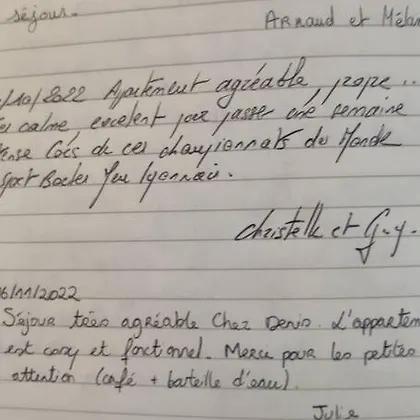 séjour. Arnaud et Mélan
/10/2022 Appartement agréable, propre...
calme, excelent pour passer une semaine
tense lors de ces championnats du Monde
sport Boules Jeu Lyonnais.
Christelle et Guy.
6/11/2022
Séjour très agréable Chez Denis. L'appartem
est cosy et fonctionnel. Merci pour les petites
attention (café + bouteille d'eau).
Julie